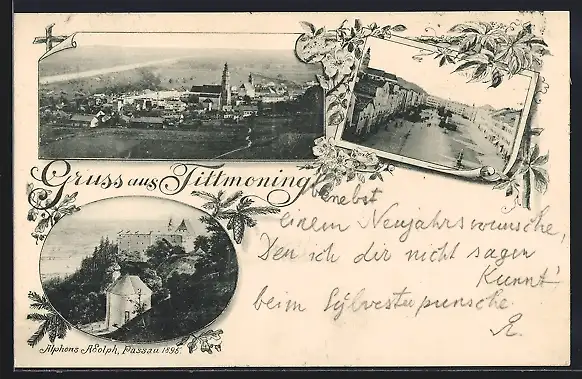 Gruss aus Tittmoning
nebst
einem Neujahrswunsche,
Den ich dir nicht sagen
Kunnt'
beim Sylvesterpunsche
R.
Alphons Adolph, Passau 1896.